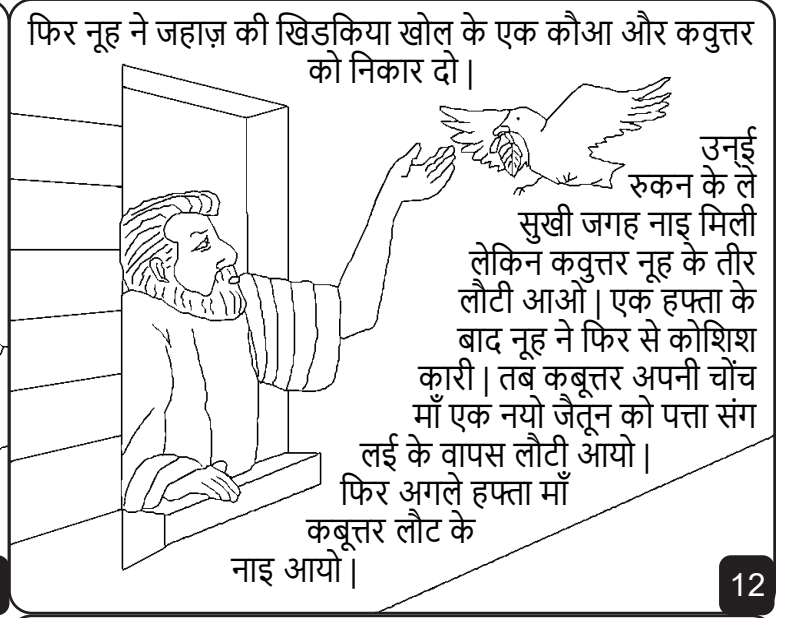 फिर नूह ने जहाज़ की खिडकिया खोल के एक कौआ और कवुत्तर
को निकार दो |
उन्ई
रुकन के ले
सुखी जगह नाइ मिली
लेकिन कवुत्तर नूह के तीर
लौटी आओ | एक हफ्ता के
बाद नूह ने फिर से कोशिश
कारी | तब कबूत्तर अपनी चोंच
माँ एक नयो जैतून को पत्ता संग
लई के वापस लौटी आयो |
फिर अगले हफ्ता माँ
कबूत्तर लौट के
नाइ आयो |
12